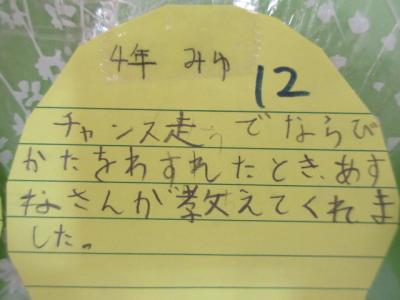 4年 みゆ
12
チャンス走でならび
かたをわすれたとき、あす
なさんが教えてくれま
した。